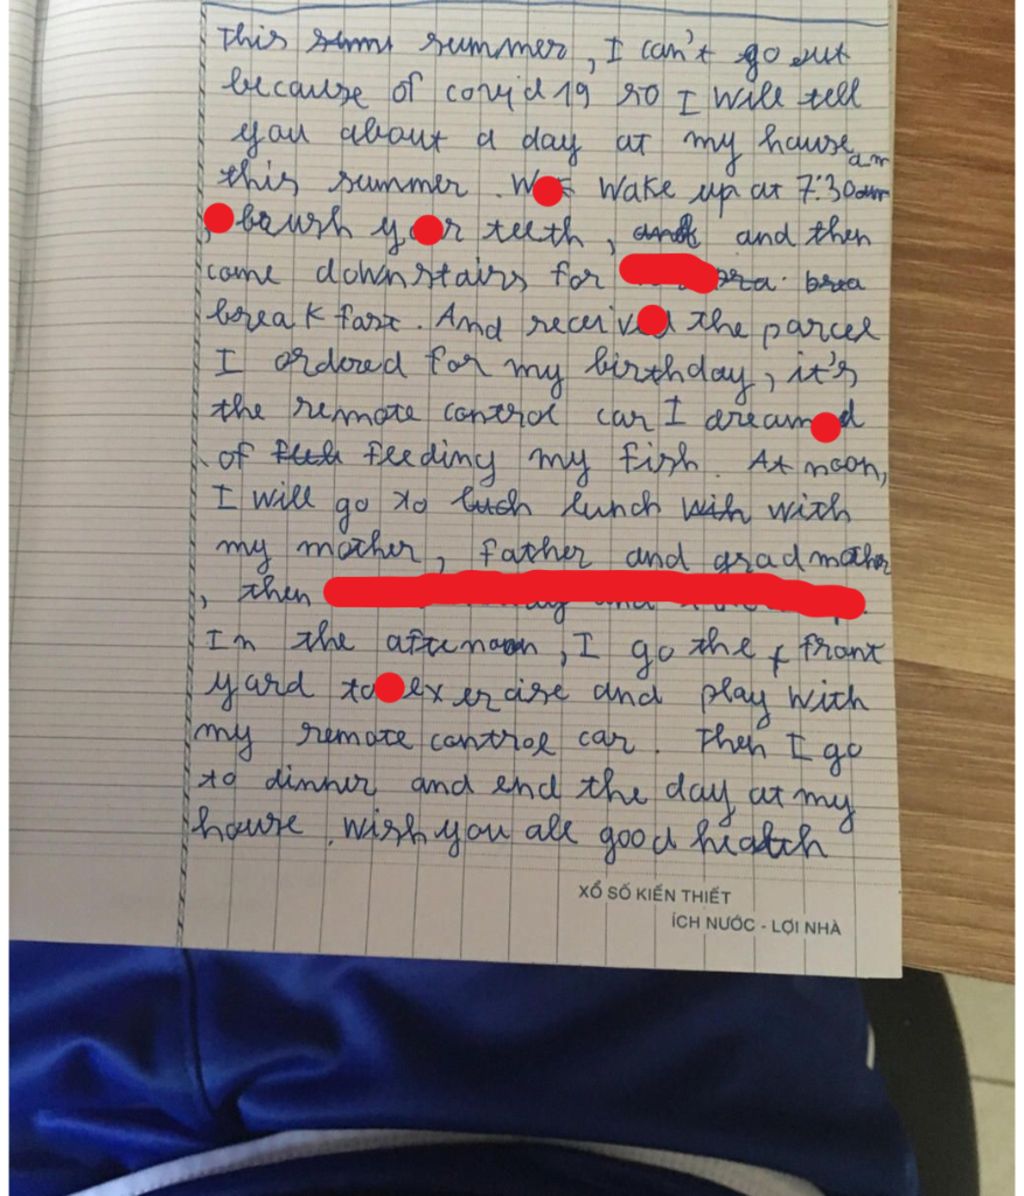 This summer, I can't go out
because of covid 19 so I will tell
you about a day at my hause
this summer. Wake up at 7:30am
baush teeth, and then
come downstairs for
breakfast. And the parcel
I ordered for my birthday, it's
the remote control car I
of feeding my fish. At noon,
I will go to lunch with
my mother, father and gradmother
, then
In the afternoon, I go the front
yard to exercise and play with
my remote control car. Then I go
to dinner and end the day at my
house. wish you all good
XỔ SỐ KIẾN THIẾT
ÍCH NƯỚC - LỢI NHÀ